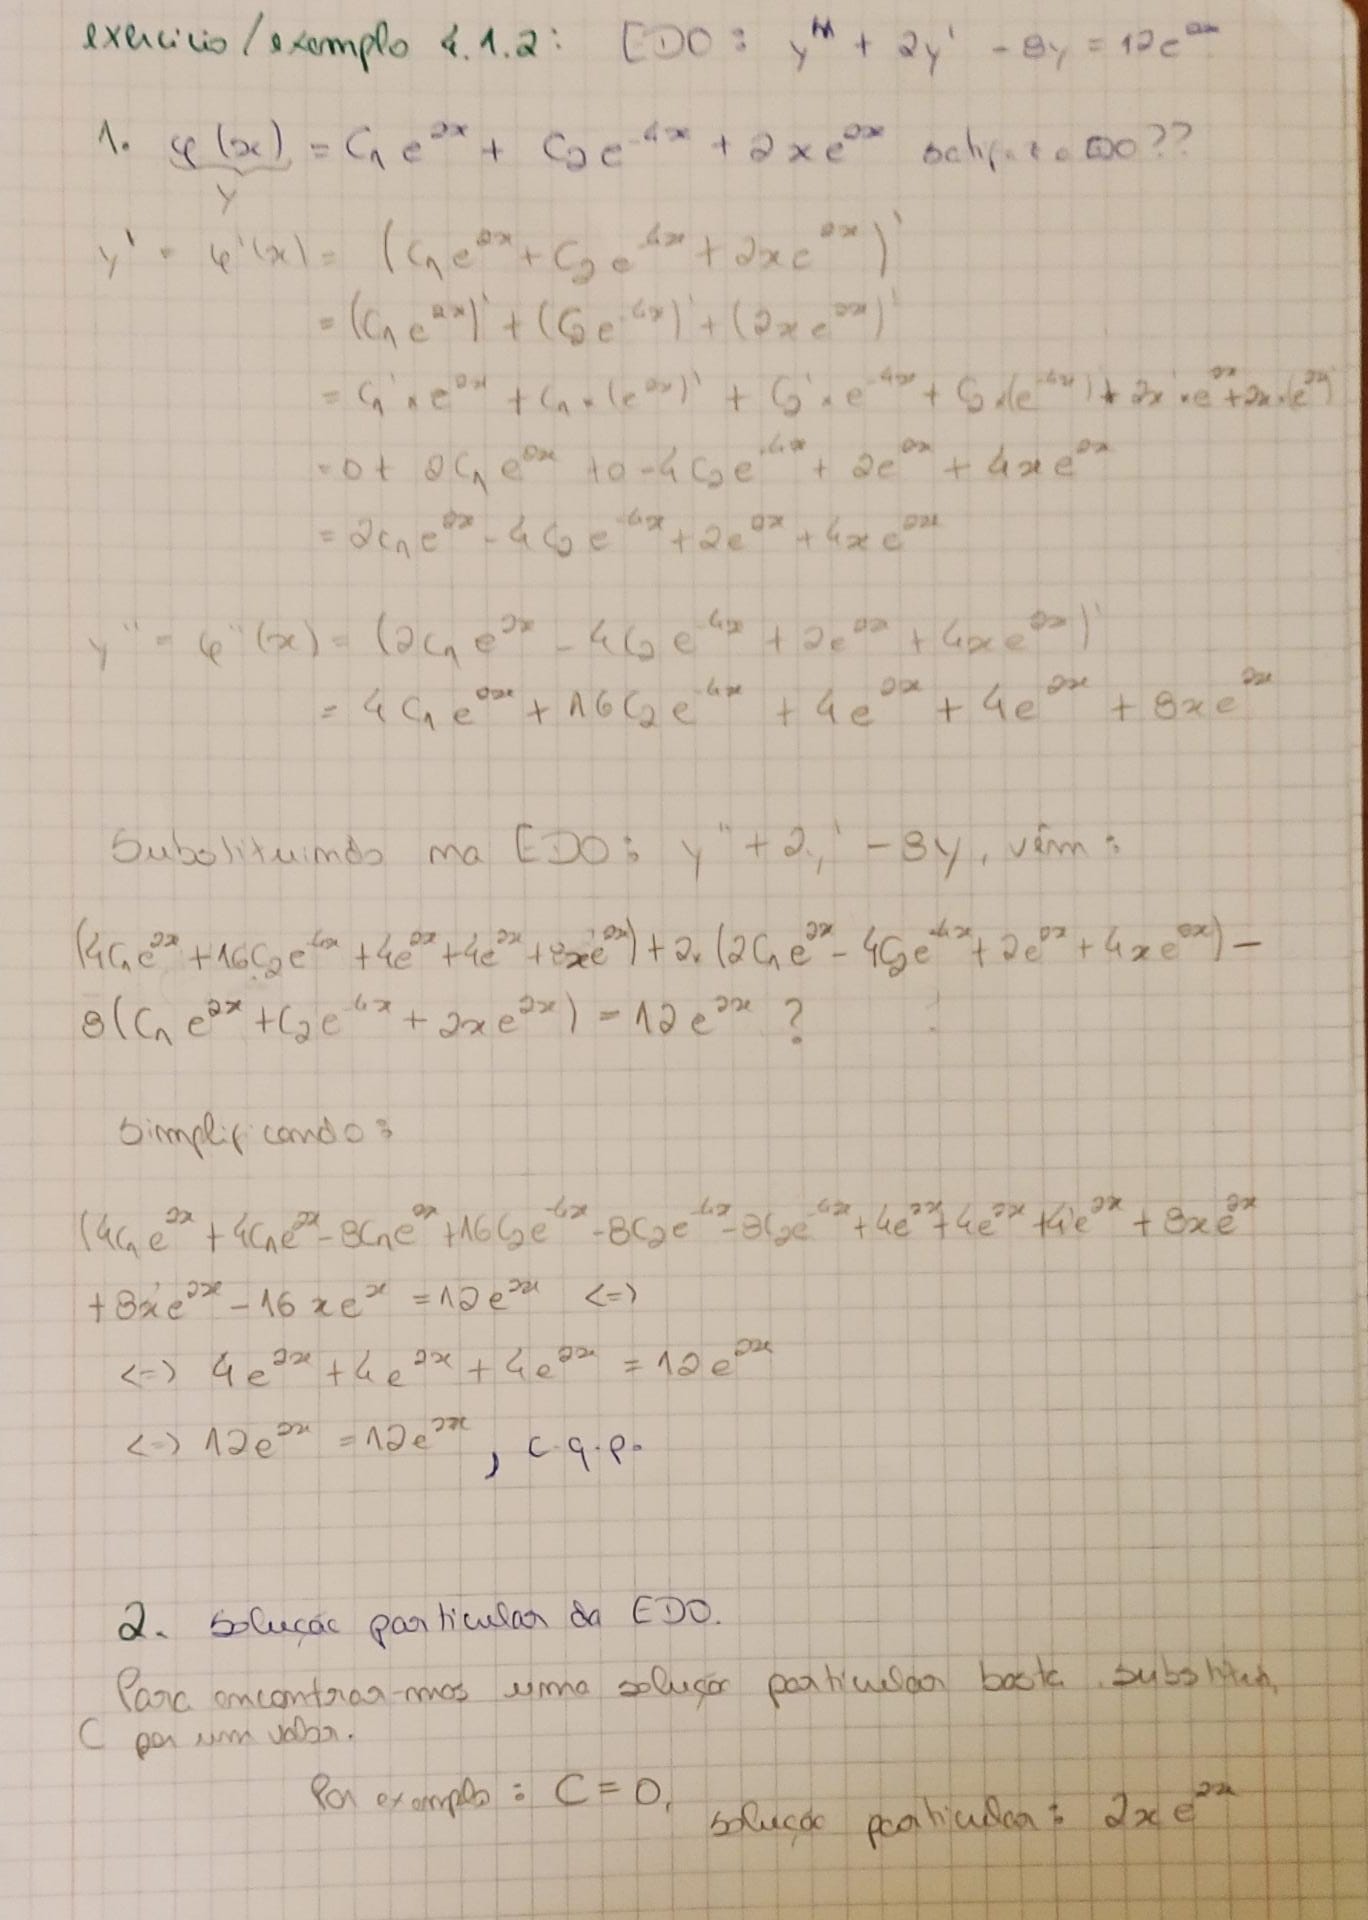 exercicio/exemplo 4.1.2: EDO: y'' + 2y' - 8y = 12e^2x
1. φ(x) = C1 e^2x + C2 e^-4x + 2x e^2x satisfaz a EDO??
y
y' = φ'(x) = (C1 e^2x + C2 e^-4x + 2x e^2x)'
= (C1 e^2x)' + (C2 e^-4x)' + (2x e^2x)'
= C1' × e^2x + C1 × (e^2x)' + C2' × e^-4x + C2 × (e^-4x)' + 2x' × e^2x + 2x × (e^2x)'
= 0 + 2C1 e^2x + 0 - 4C2 e^-4x + 2e^2x + 4x e^2x
= 2C1 e^2x - 4C2 e^-4x + 2e^2x + 4x e^2x
y'' = φ''(x) = (2C1 e^2x - 4C2 e^-4x + 2e^2x + 4x e^2x)'
= 4C1 e^2x + 16C2 e^-4x + 4e^2x + 4e^2x + 8x e^2x
Substituindo na EDO: y'' + 2y' - 8y, vêm:
(4C1 e^2x + 16C2 e^-4x + 4e^2x + 4e^2x + 8x e^2x) + 2 × (2C1 e^2x - 4C2 e^-4x + 2e^2x + 4x e^2x) -
8(C1 e^2x + C2 e^-4x + 2x e^2x) = 12e^2x ?
Simplificando:
(4C1 e^2x + 4C1 e^2x - 8C1 e^2x + 16C2 e^-4x - 8C2 e^-4x - 8C2 e^-4x + 4e^2x + 4e^2x + 4e^2x + 8x e^2x
+ 8x e^2x - 16x e^x = 12e^2x <=>
<=> 4e^2x + 4e^2x + 4e^2x = 12e^2x
<=> 12e^2x = 12e^2x, c.q.p.
2. Solução particular da EDO.
Para encontrar-mos uma solução particular basta substituir
C por um valor.
Por exemplo: C = 0,
solução particular: 2x e^2x